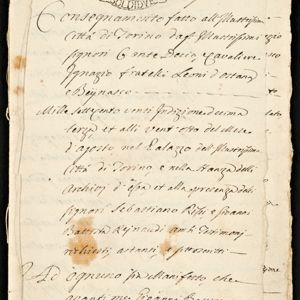 Consegnamento fatto all' Illustrissima
Città di Torino da gl' Illustrissimi
signori Conte Dorio, Cavaliere
Ignazio fratelli Leoni d'ostana
e Beynasco
Mille settecento venti Indizione decima
terza et alli vent' otto del Mese
d'agosto nel Palazzo dell' Illustrissima
Città di Torino, e nella stanza delli
Archivj d'essa et alla presenza delli
signori Sebastiano e
Battista Reynaudi ambi Testimonj
richiesti, astanti, e
Ad ognuno sia Manifesto che
avanti me